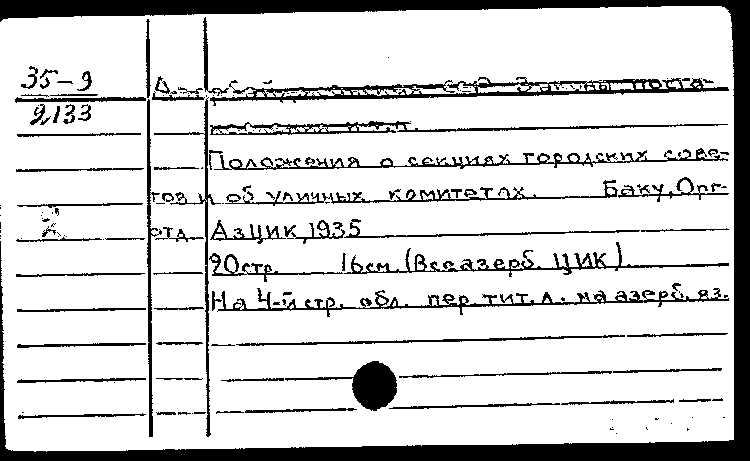 35-9
Азербайджанская ССР Законы, поста-
2133
новления и т.п.
Положения о секциях городских сове-
тов и об уличных комитетах. Баку, Орг-
отд. АзЦИК, 1935
20стр. 16см. (Всеазерб. ЦИК).
На 4-й стр. обл. пер. тит. л. на азерб. яз.